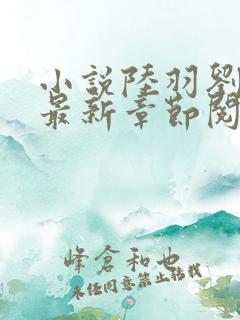 小說陸羽劉
最新章節閱
峰倉和也
未經同意禁止轉載